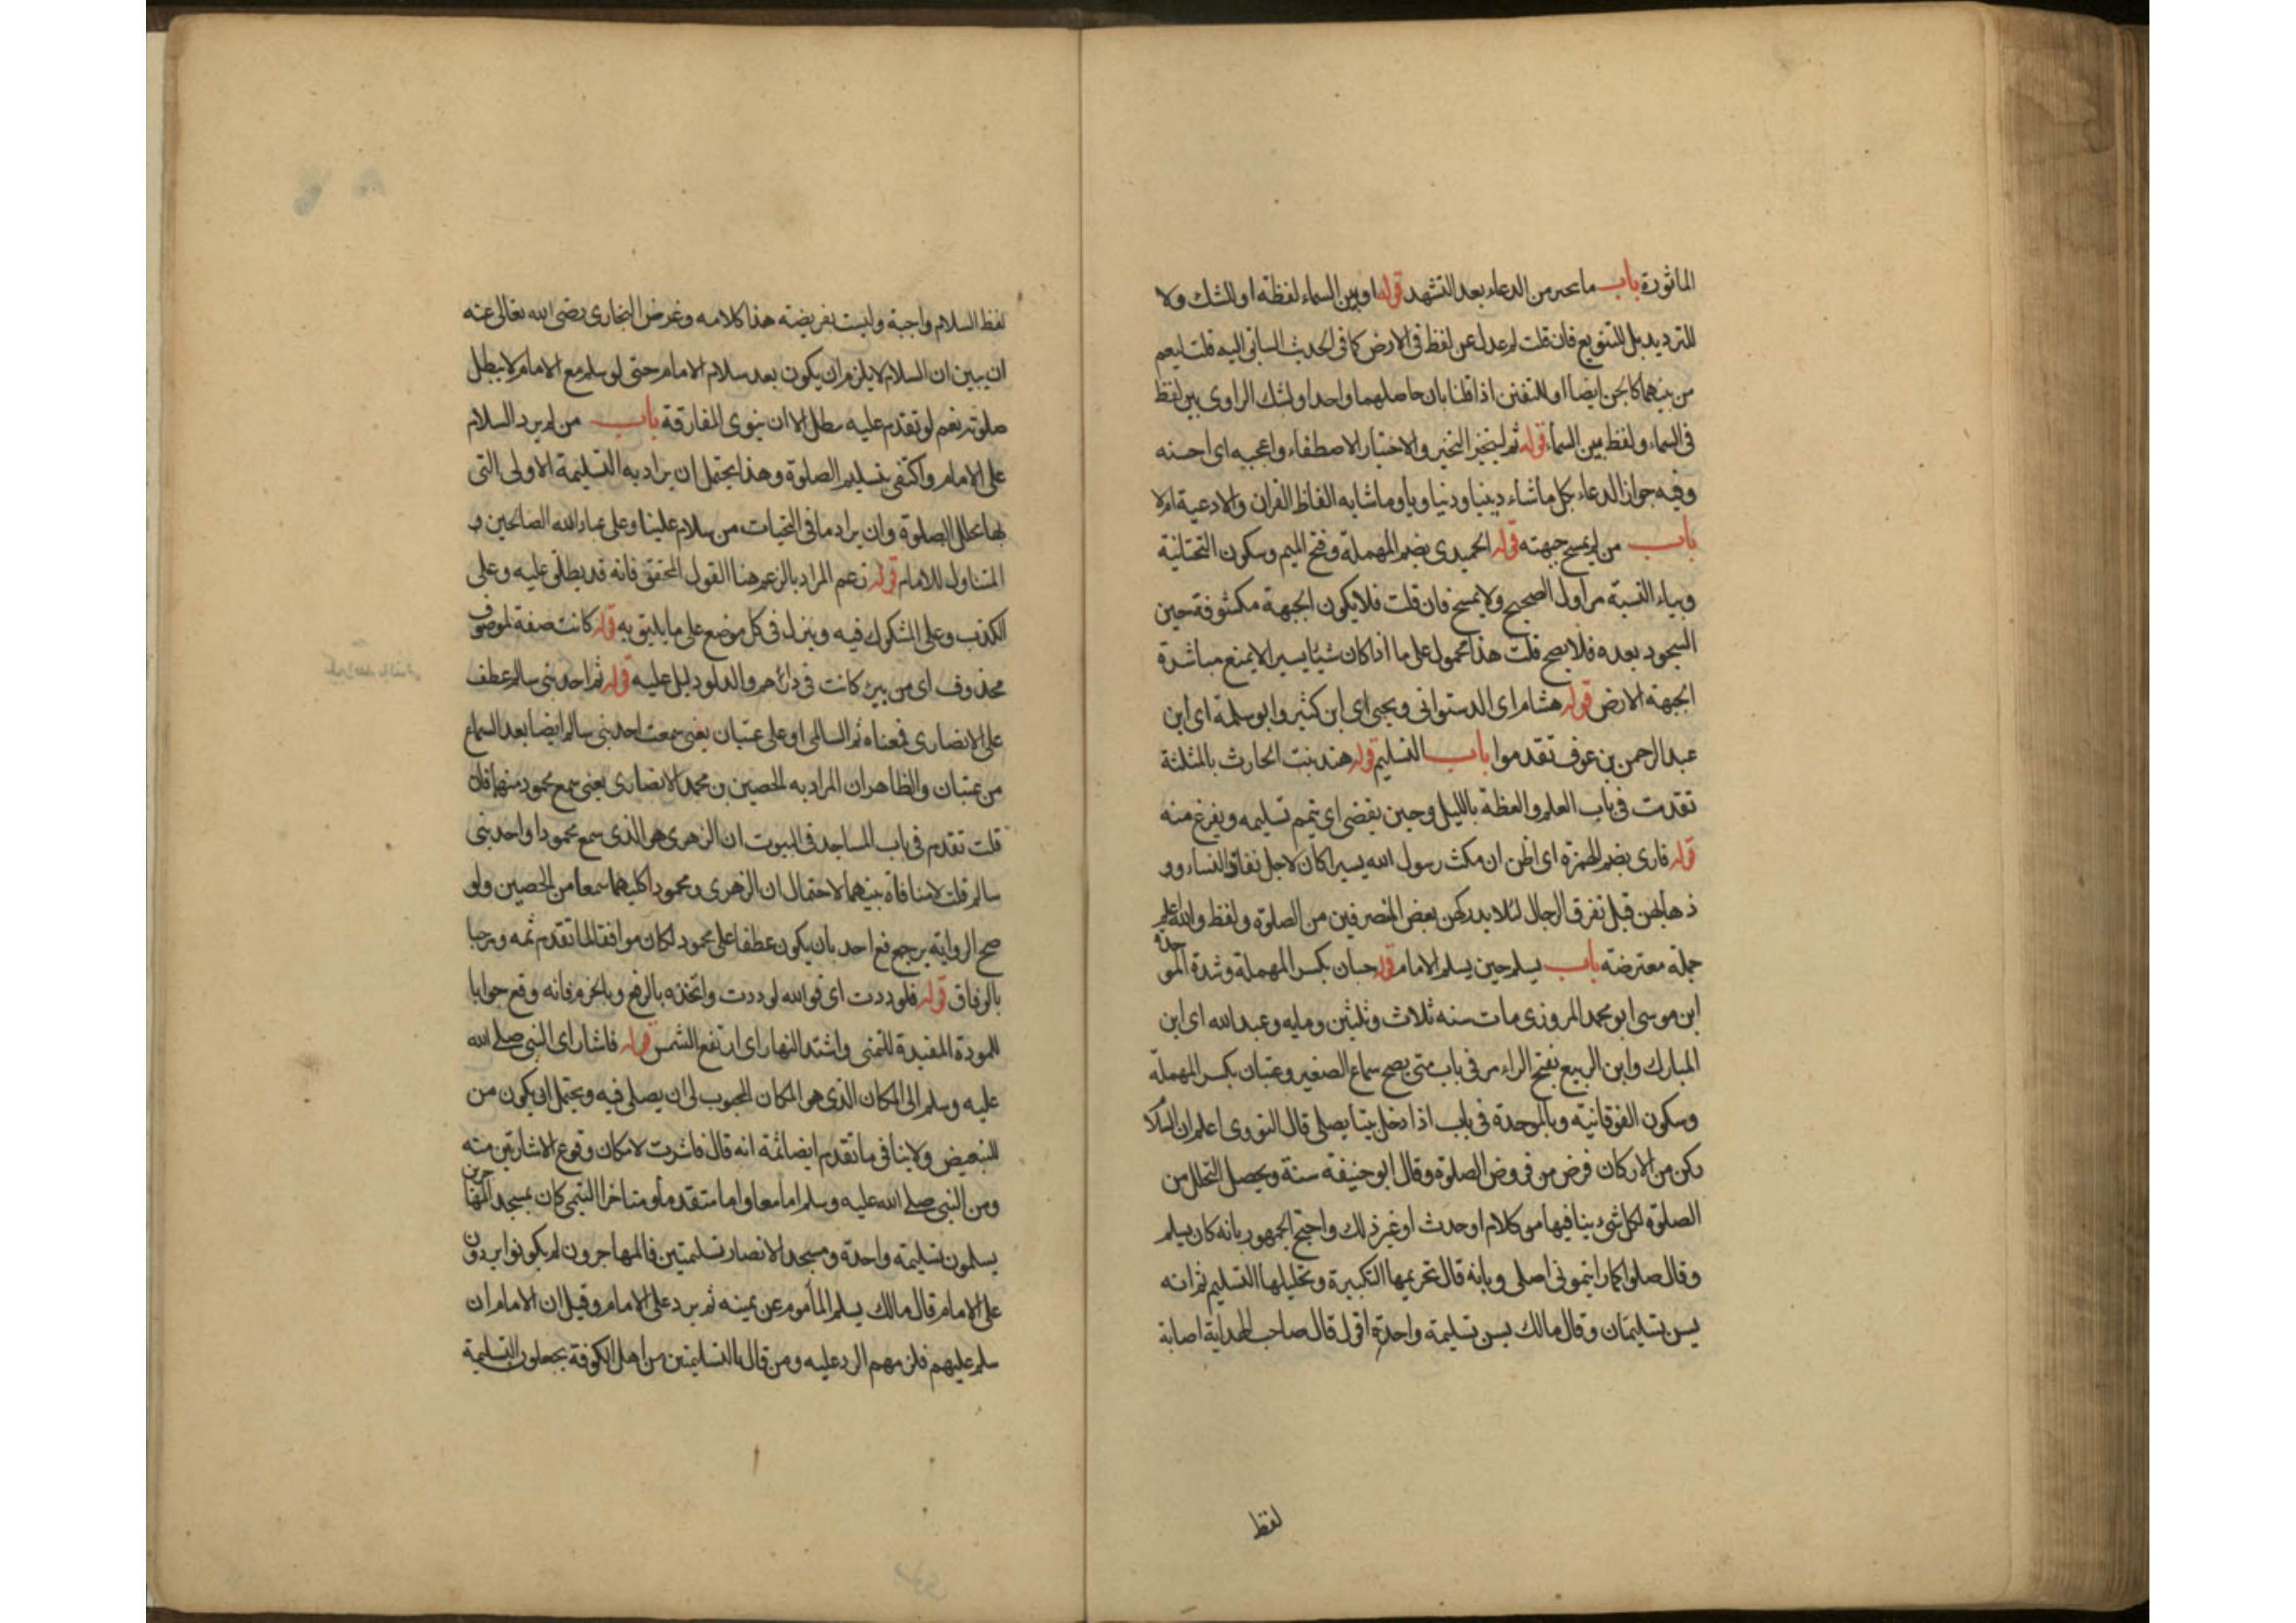 الماثورة باب ما يتخير من الدعاء بعد التشهد قوله او بين السماء لفظة او للشك ولا
للترديد بل للتنويع فان قلت لم عدل عن لفظ في الارض كما في الحديث السابق اليه قلت ليعم
من بينهما كالجن ايضا او للتفنن اذا قلنا بان حاصلهما واحد او لشك الراوى بين لفظ
في السماء ولفظ بين السماء قوله ثم ليتخير التخير والاختيار الاصطفاء واعجبه اى احسنه
وفيه جواز الدعاء بكل ما شاء دينيا ودنياويا وما شابه الفاظ القران والادعية ام لا
باب من لم يمسح جبهته قوله الحميدى بضم المهملة وفتح الميم وسكون التحتانية
وبياء النسبة مر اول الصحيح ولا يمسح فان قلت فلا يكون الجبهة مكشوفة حين
السجود بعده فلا يصح قلت هذا محمول على ما اذا كان شيئا يسيرا لا يمنع مباشرة
الجبهة الارض قوله هشام اى الدستوانى ويحيى اى ابن كثير وابو سلمة اى ابن
عبد الرحمن بن عوف تقدموا باب التسليم قوله هند بنت الحارث بالمثلثة
تقدمت في باب العلم والعظة بالليل وحين يقضى اى يتم تسليمه ويفرغ منه
قوله فارى بضم الهمزة اى اظن ان مكث رسول الله يسيرا كان لاجل نفاذ النساء وو
ذهابهن قبل تفرق الرجال لئلا يدركهن بعض المنصرفين من الصلوة ولفظ والله اعلم
جملة معترضة باب يسلم حين يسلم الامام قوله حبان بكسر المهملة وشدة الموحدة
ابن موسى ابو محمد المروزى مات سنه ثلاث وثلثين ومايه وعبد الله اى ابن
المبارك وابن الربيع بفتح الراء مر في باب متى يصح سماع الصغير وعتبان بكسر المهملة
وسكون الفوقانية وبالموحدة في باب اذا دخل بيتا يصلى قال النووى اعلم ان السلا
ركن من الاركان فرض من فروض الصلوة وقال ابو حنيفة سنة ويحصل التحلل من
الصلوة لكل شىء ينافيها من كلام او حدث او غير ذلك واحتج الجمهور بانه كان يسلم
وقال صلوا كما رايتمونى اصلى وبانه قال تحريمها التكبيرة وتحليلها التسليم ثم انه
يسن تسليمتان وقال مالك يسن تسليمة واحدة اقول قال صاحب الهداية اصابة
لفظ
لفظ السلام واجبة وليست بفريضته هذا كلامه وغرض البخارى رضى الله تعالى عنه
ان يبين ان السلام لا يلزم ان يكون بعد سلام الامام حتى لو سلم مع الامام لا يبطل
صلوته نعم لو تقدم عليه يبطل الا ان ينوى المفارقة باب من لم يرد السلام
على الامام واكتفى بتسليم الصلوة وهذا يحتمل ان يراد به التسليمة الاولى التى
بها تحلل الصلوة وان يراد ما في التحيات من سلام علينا وعلى عباد الله الصالحين و
المتناول للامام قوله زعم المراد بالزعم هنا القول المحقق فانه قد يطلق عليه وعلى
الكذب وعلى المشكوك فيه وينزل في كل موضع على ما يليق به قوله كانت صفة لموصوف
محذوف اى من بير كانت في دارهم والدلو دليل عليه قوله ثم احد بنى سالم عطف
على الانصارى فمعناه ثم السالمى او على عتبان يعنى سمعت احد بنى سالم ايضا بعد السماع
من عتبان والظاهر ان المراد به الحصين بن محمد الانصارى يعنى سمع محمود منهما فان
قلت تقدم في باب المساجد في البيوت ان الزهرى هو الذى سمع محمودا واحد بنى
سالم قلت لا منافاة بينهما لاحتمال ان الزهرى ومحمودا كليهما سمعا من الحصين ولو
صح الرواية برجع فع احد بان يكون عطفا على محمود لكان موافقا لما تقدم ثمه ومرحبا
بالوفاق قوله فلوددت اى فوالله لوددت واتخذه بالرفع وبالجزم فانه وقع جوابا
للمودة المفيدة للتمنى واشتد النهار اى ارتفع الشمس قوله فاشار اى النبى صلى الله
عليه وسلم الى المكان الذى هو المكان المحبوب لى ان يصلى فيه ويحتمل ان يكون من
للتبعيض ولا ينافى ما تقدم ايضا ثمة انه قال فاشرت لامكان وقوع الاشارتين منه
ومن النبى صلى الله عليه وسلم اما معا واما متقدما ومتاخرا التيمى كان بمسجد المهاجرين
يسلمون تسليمة واحدة ومسجد الانصار تسليمتين فالمهاجرون لم يكونوا يردون
على الامام قال مالك يسلم المأموم عن يمينه ثم يرد على الامام وقيل ان الامام ان
سلم عليهم فلزمهم الرد عليه ومن قال بالتسليمتين من اهل الكوفة يجعلون التسليمة